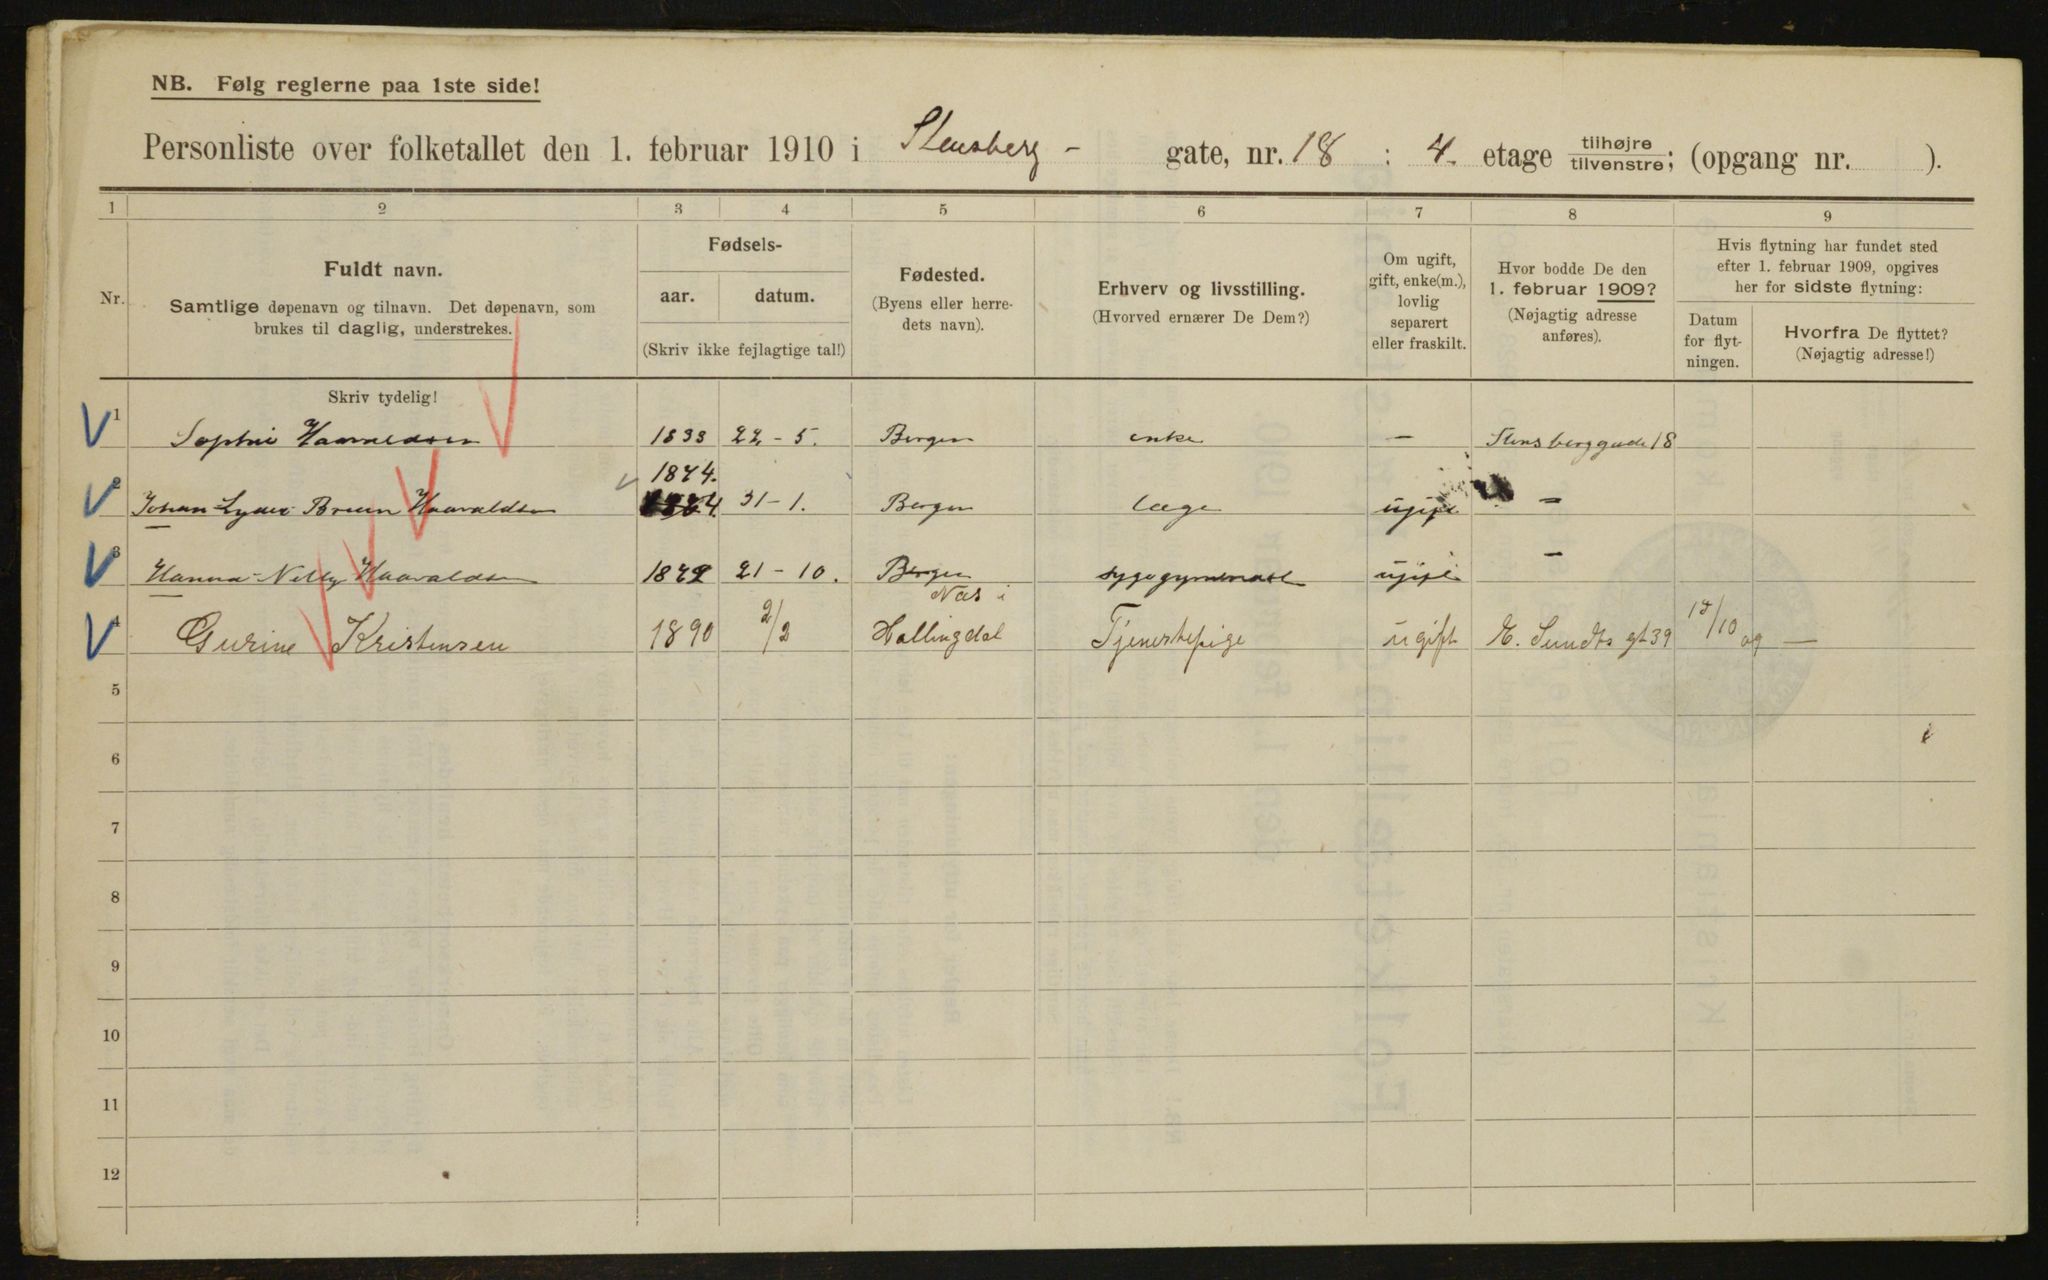 NB. Følg reglerne paa 1ste side!
Personliste over folketallet den 1. februar 1910 i Stensberg- gate, nr. 18 : 4. etage tilhøjre tilvenstre; (opgang nr. ).
1 2 3 4 5 6 7 8 9
Nr.
Fuldt navn.
Samtlige døpenavn og tilnavn. Det døpenavn, som
brukes til daglig, understrekes.
Skriv tydelig!
Fødsels-
aar. datum.
(Skriv ikke fejlagtige tal!)
Fødested.
(Byens eller herre-
dets navn).
Erhverv og livsstilling.
(Hvorved ernærer De Dem?)
Om ugift,
gift, enke(m.),
lovlig
separert
eller fraskilt.
Hvor bodde De den
1. februar 1909?
(Nøjagtig adresse
anføres).
Hvis flytning har fundet sted
efter 1. februar 1909, opgives
her for sidste flytning:
Datum
for flyt-
ningen.
Hvorfra De flyttet?
(Nøjagtig adresse!)
1 Sophie Haavaldsen 1833 22-5. Bergen enke — Stensberggade 18
2 Johan Lyder Bruun Haavaldsen 1874. 31-1. Bergen læge ugift —
3 Hanna-Nelly Haavaldsen 1872 21-10. Bergen sygegymnast ugift —
4 Gurine Kristensen 1890 2/2 Næs i Hallingdal Tjenestepige ugift E. Sundts gt 39 /10 09 —
5
6
7
8
9
10
11
12